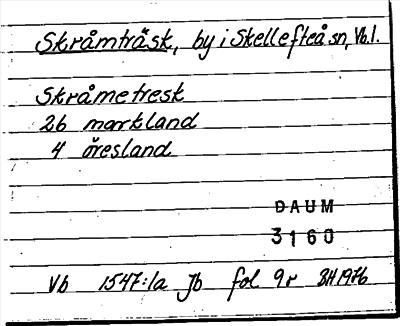 Skråmträsk, by i Skellefteå sn, Vb.l.
Skråmetresk
26 markland
4 öresland
DAUM
3160
Vb 1547:1a Jb fol 9r BH 1976